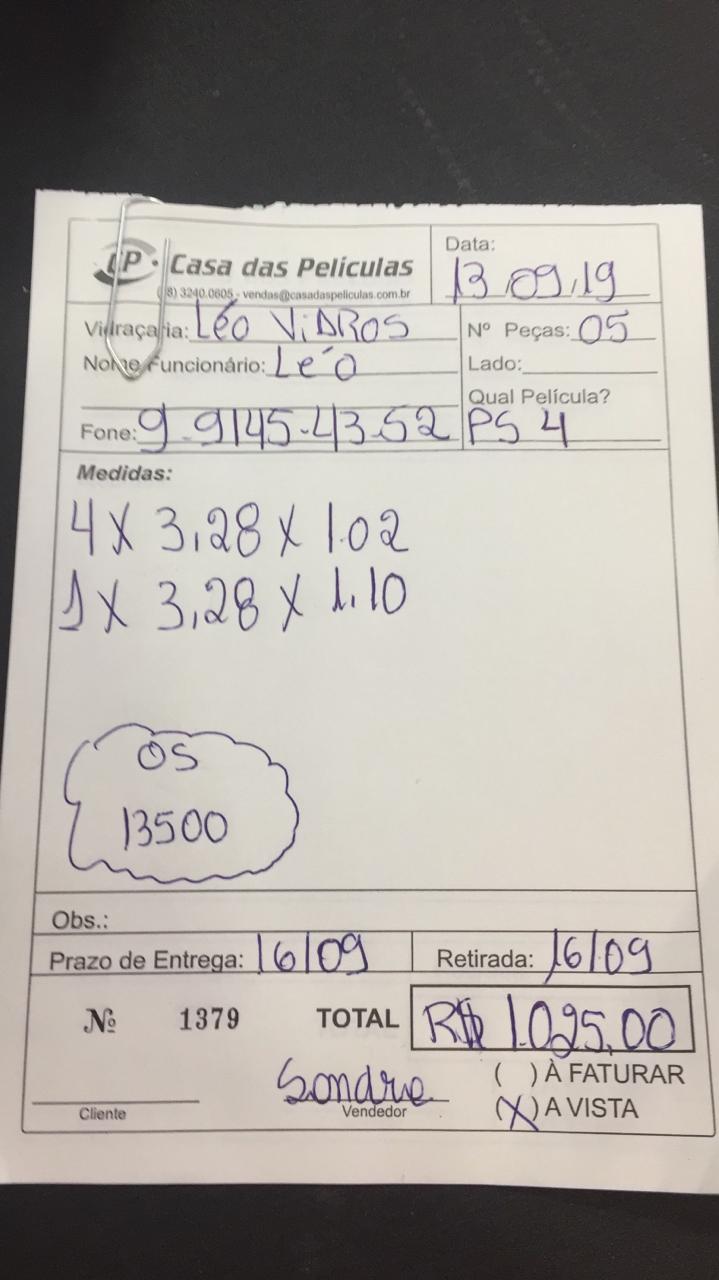 CP · Casa das Películas
8) 3240.0605 - vendas@casadaspeliculas.com.br
Data:
13.09.19
Vidraçaria: LÉO ViDROS
Nº Peças: 05
Nome Funcionário: LéO
Lado:
Qual Película?
Fone: 9-9145-4352
PS 4
Medidas:
4 X 3,28 X 1.02
1 X 3,28 X 1.10
OS
13500
Obs.:
Prazo de Entrega: 16/09
Retirada: 16/09
Nº 1379
TOTAL R$ 1.025,00
( ) À FATURAR
Sondre
Cliente
Vendedor
(X) A VISTA